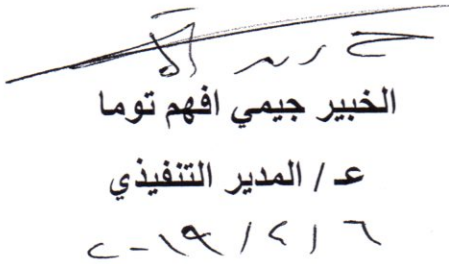 الخبير جيمي افهم توما
عـ / المدير التنفيذي
٢٠١٩/٤/٦